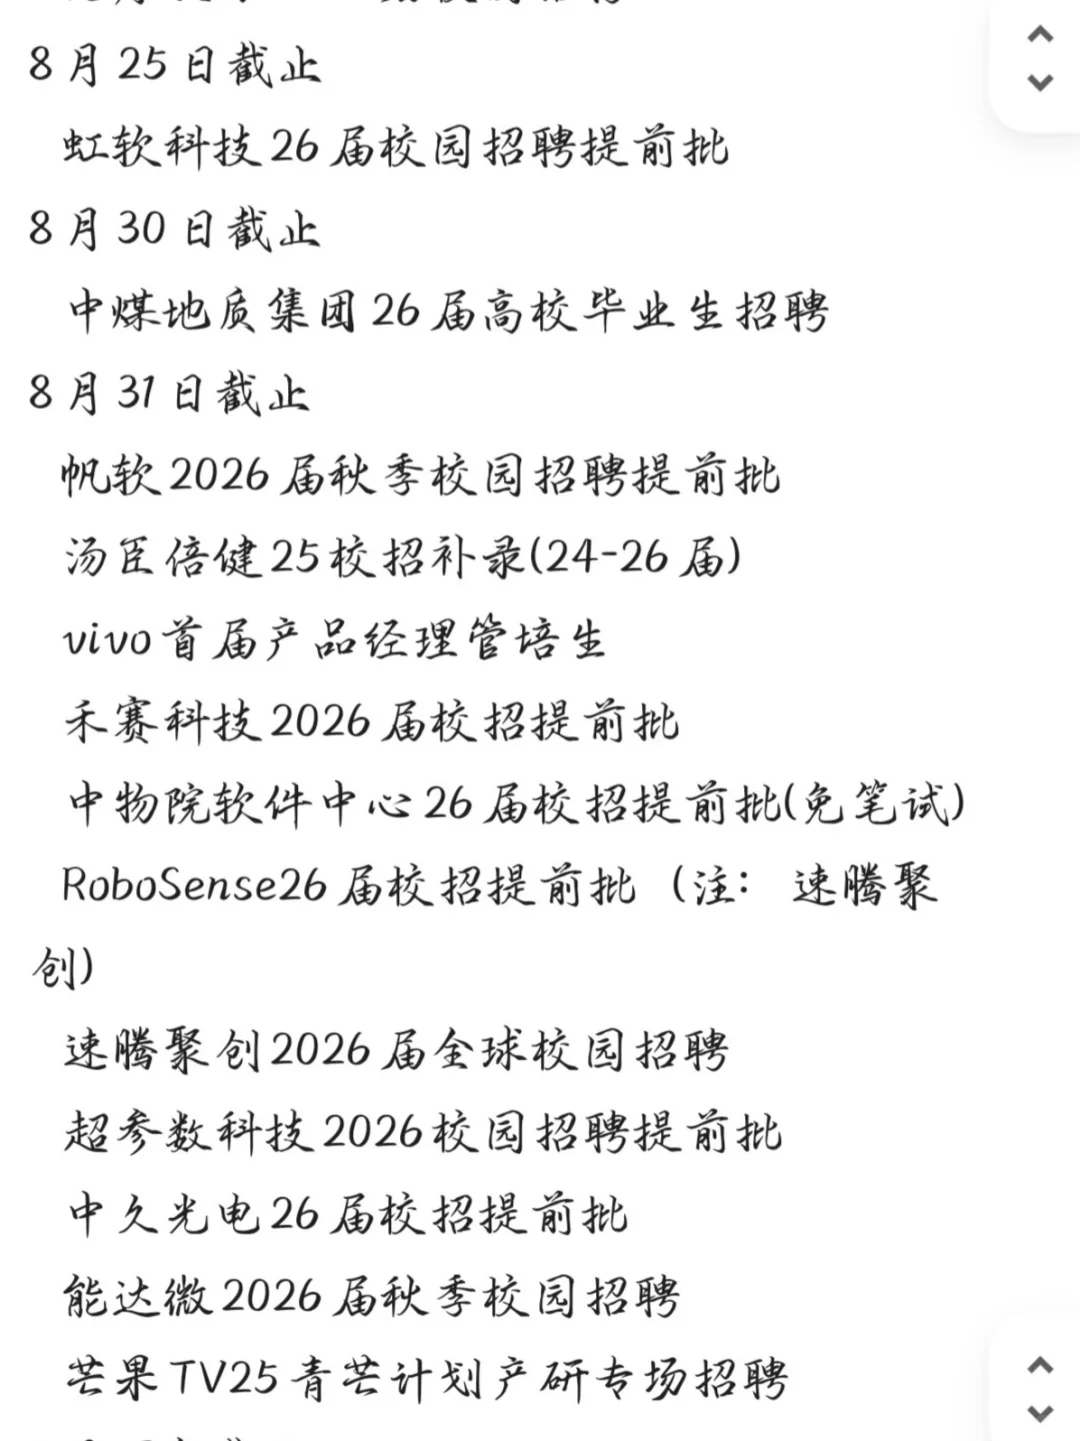 8月25日截止
虹软科技26届校园招聘提前批
8月30日截止
中煤地质集团26届高校毕业生招聘
8月31日截止
帆软2026届秋季校园招聘提前批
汤臣倍健25校招补录(24-26届)
vivo首届产品经理管培生
禾赛科技2026届校招提前批
中物院软件中心26届校招提前批(免笔试)
RoboSense26届校招提前批（注： 速腾聚
创)
速腾聚创2026届全球校园招聘
超参数科技2026校园招聘提前批
中久光电26届校招提前批
能达微2026届秋季校园招聘
芒果TV25青芒计划产研专场招聘